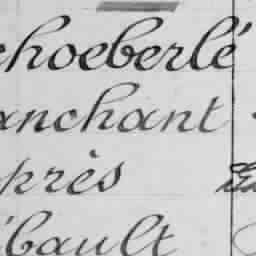 choeberlé
anchant
près
bault